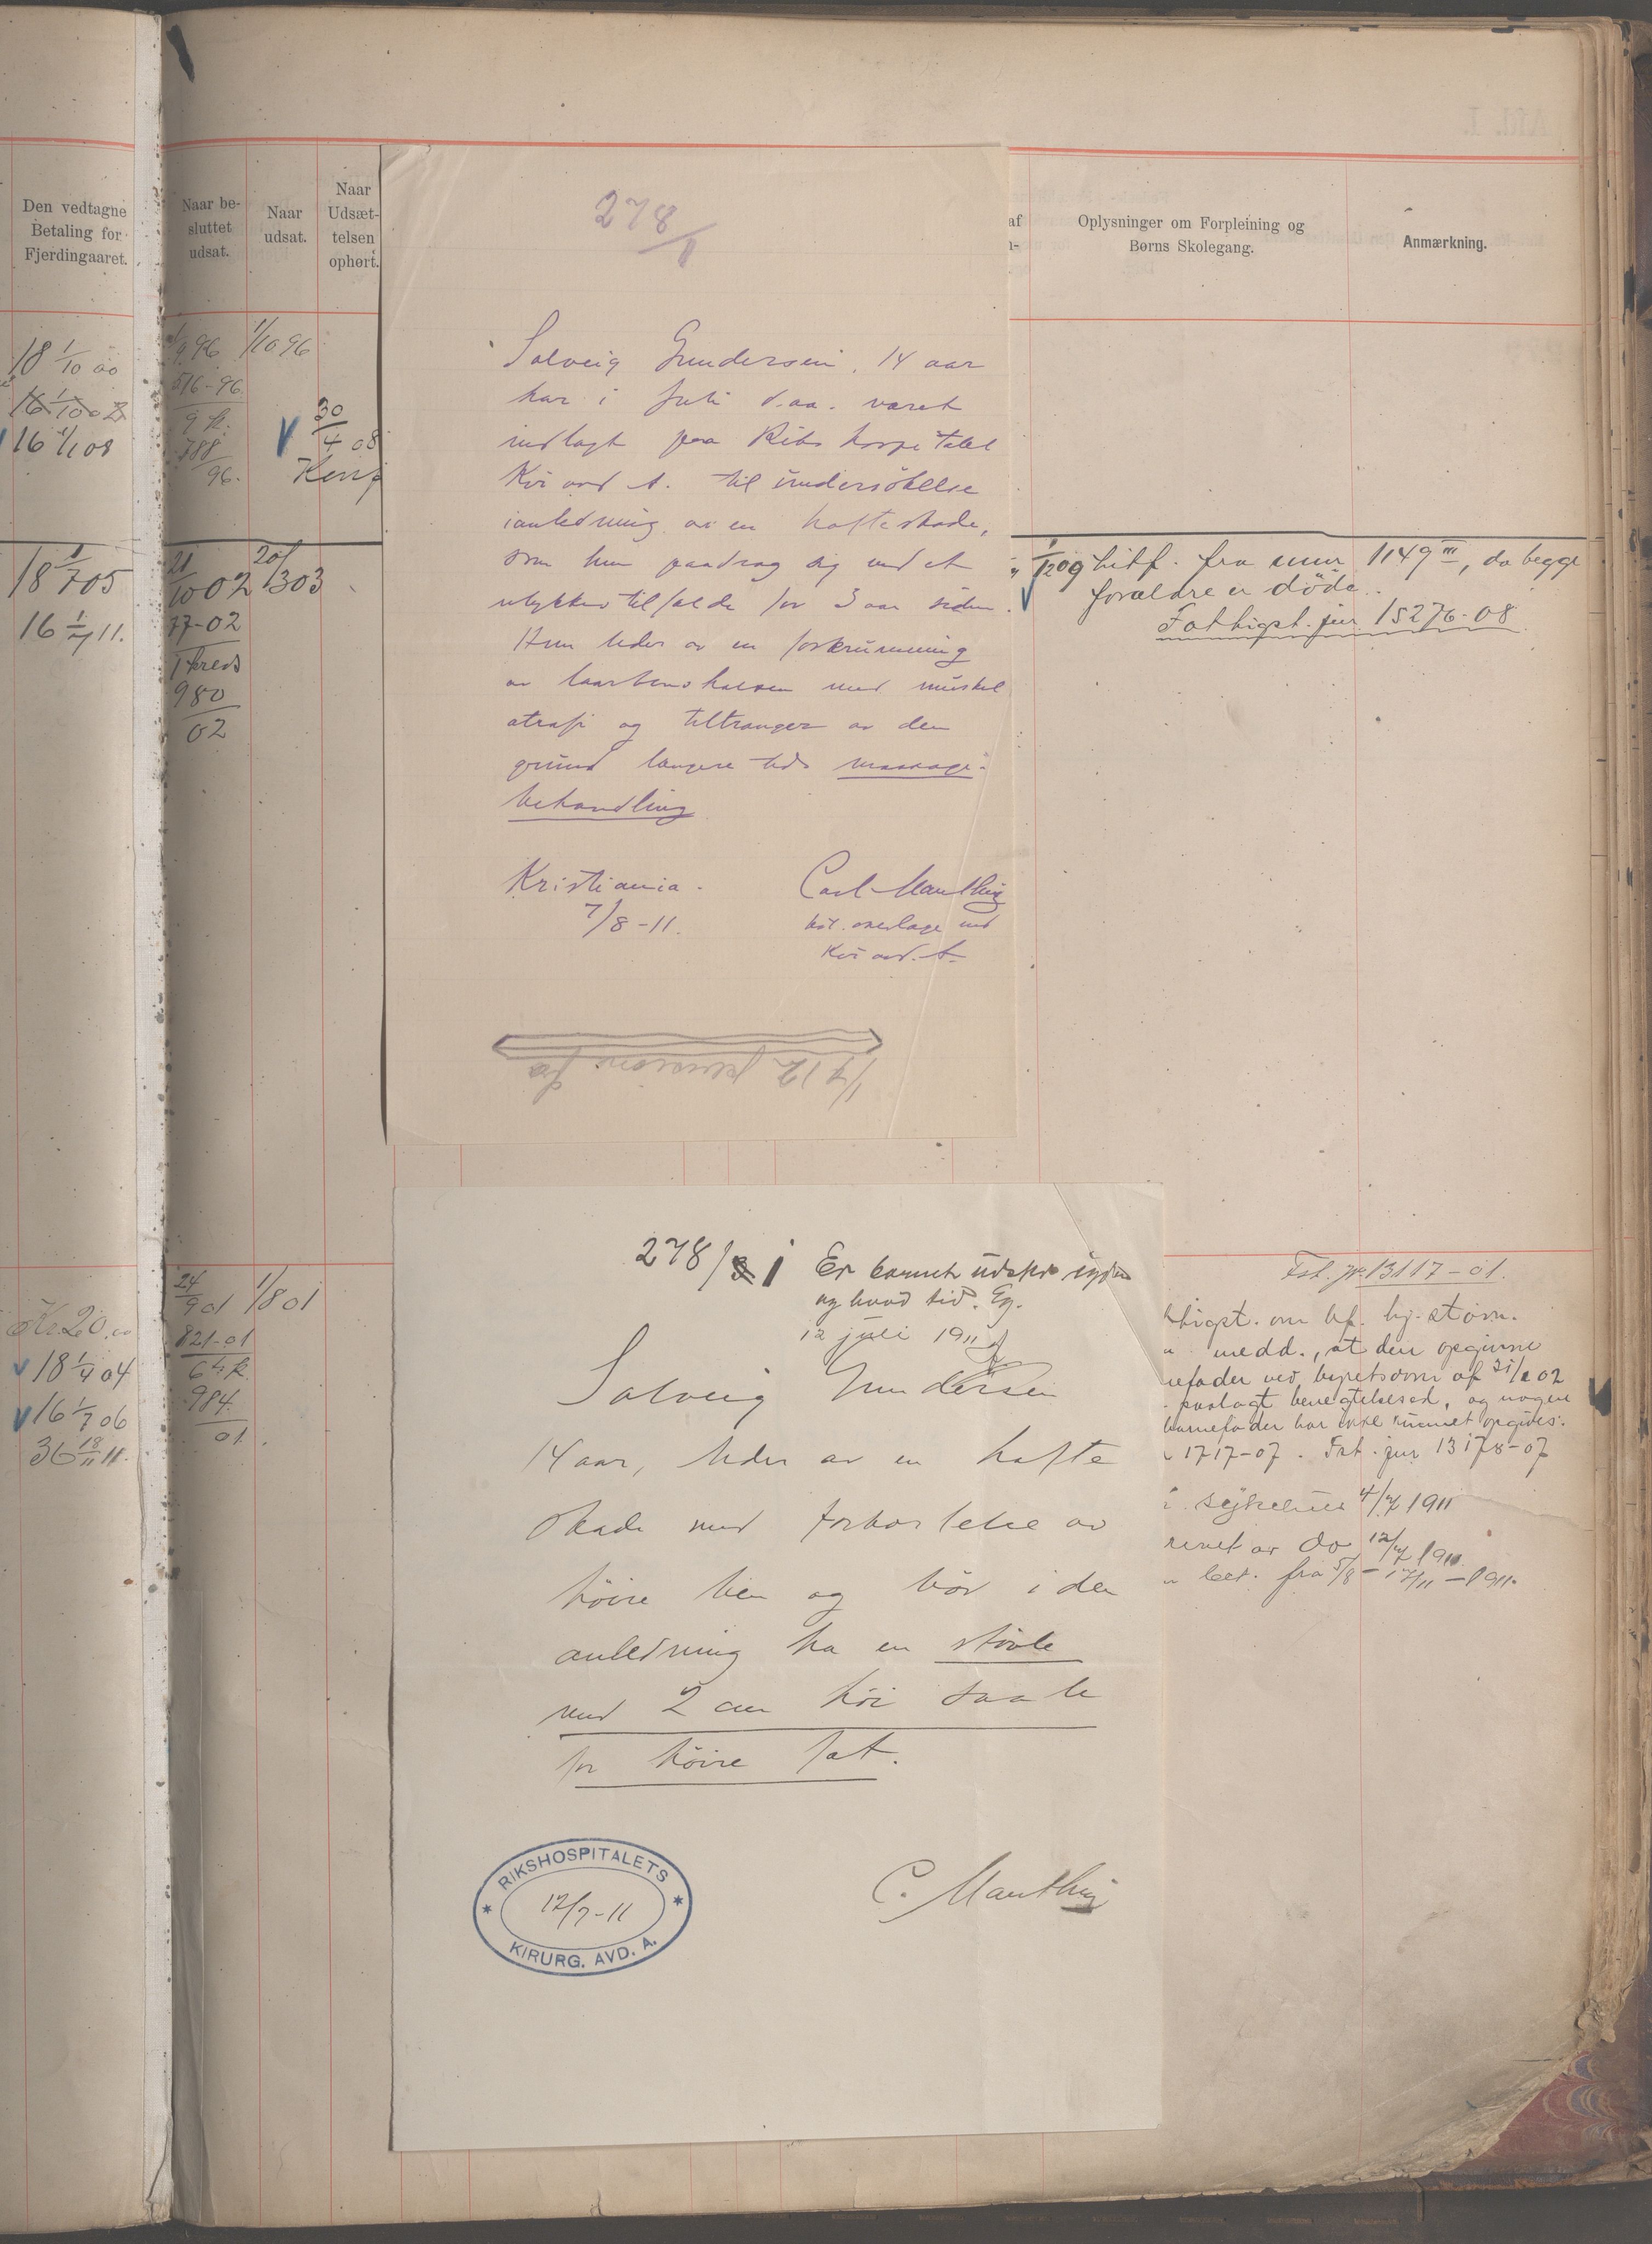 Den vedtagne
Betaling for
Fjerdingaaret.
18 1/10 00
16 1/10 02
16 1/1 08
18 1/7 05
16 1/7 11.
Kr. 20.00
18 1/4 04
16 1/7 06
36 18/11 11.
Naar be-
sluttet
udsat.
Naar
udsat.
Naar
Udsæt-
telsen
ophørt.
9.96 1/10 96
516-96.
9 k.
788
96.
30/4 08
21/10 02 20/1 303
77-02
1 kreds
980
02
24/9 01 1/8 01
821-01
6 k.
984.
01.
278/1
Solveig Gundersen, 14 aar
har i juli d.aa. været
indlagt paa Riks hospitalet
Kir avd A. til undersökelse
i anledning av en hofteskade,
som hun paadrog sig ved et
ulykkestilfælde for 3 aar siden.
Hun lider av en forkrumning
av laarbenshalsen med muskel
atrofi og tiltrænger av den
grund længere tids massage-
behandling
Kristiania.
7/8-11.
Carl Manthey
kst. overlæge ved
Kir avd. A.
1/4 12 pension fra
af
Oplysninger om Forpleining og
Børns Skolegang.
Anmærkning.
1/12 09 hitf. fra num 1149 III, da begge
forældre er döde.
Fattigst. jur 15276-08
278/1 Er barnet udskr
og hvad tid. Eg.
12 juli 1911
Solveig Gundersen
14 aar, lider av en hofte
skade med forkortelse av
höire ben og bör i den
anledning ha en stövle
med 2 cm höi saale
for höire fot.
RIKSHOSPITALETS
12/7-11
KIRURG. AVD. A.
C. Manthey
Fat. jr. 13117-01.
medd., at den opgivne
efader ved byretsdom af 21/2 02
paalagt benegtelsesed, og nogen
barnefader har ikke kunnet opgives.
1717-07. Fat. jur 13178-07
sykehus 4/7 1911
do 12/7 1911.
fra 5/8 - 17/11 - 1911.